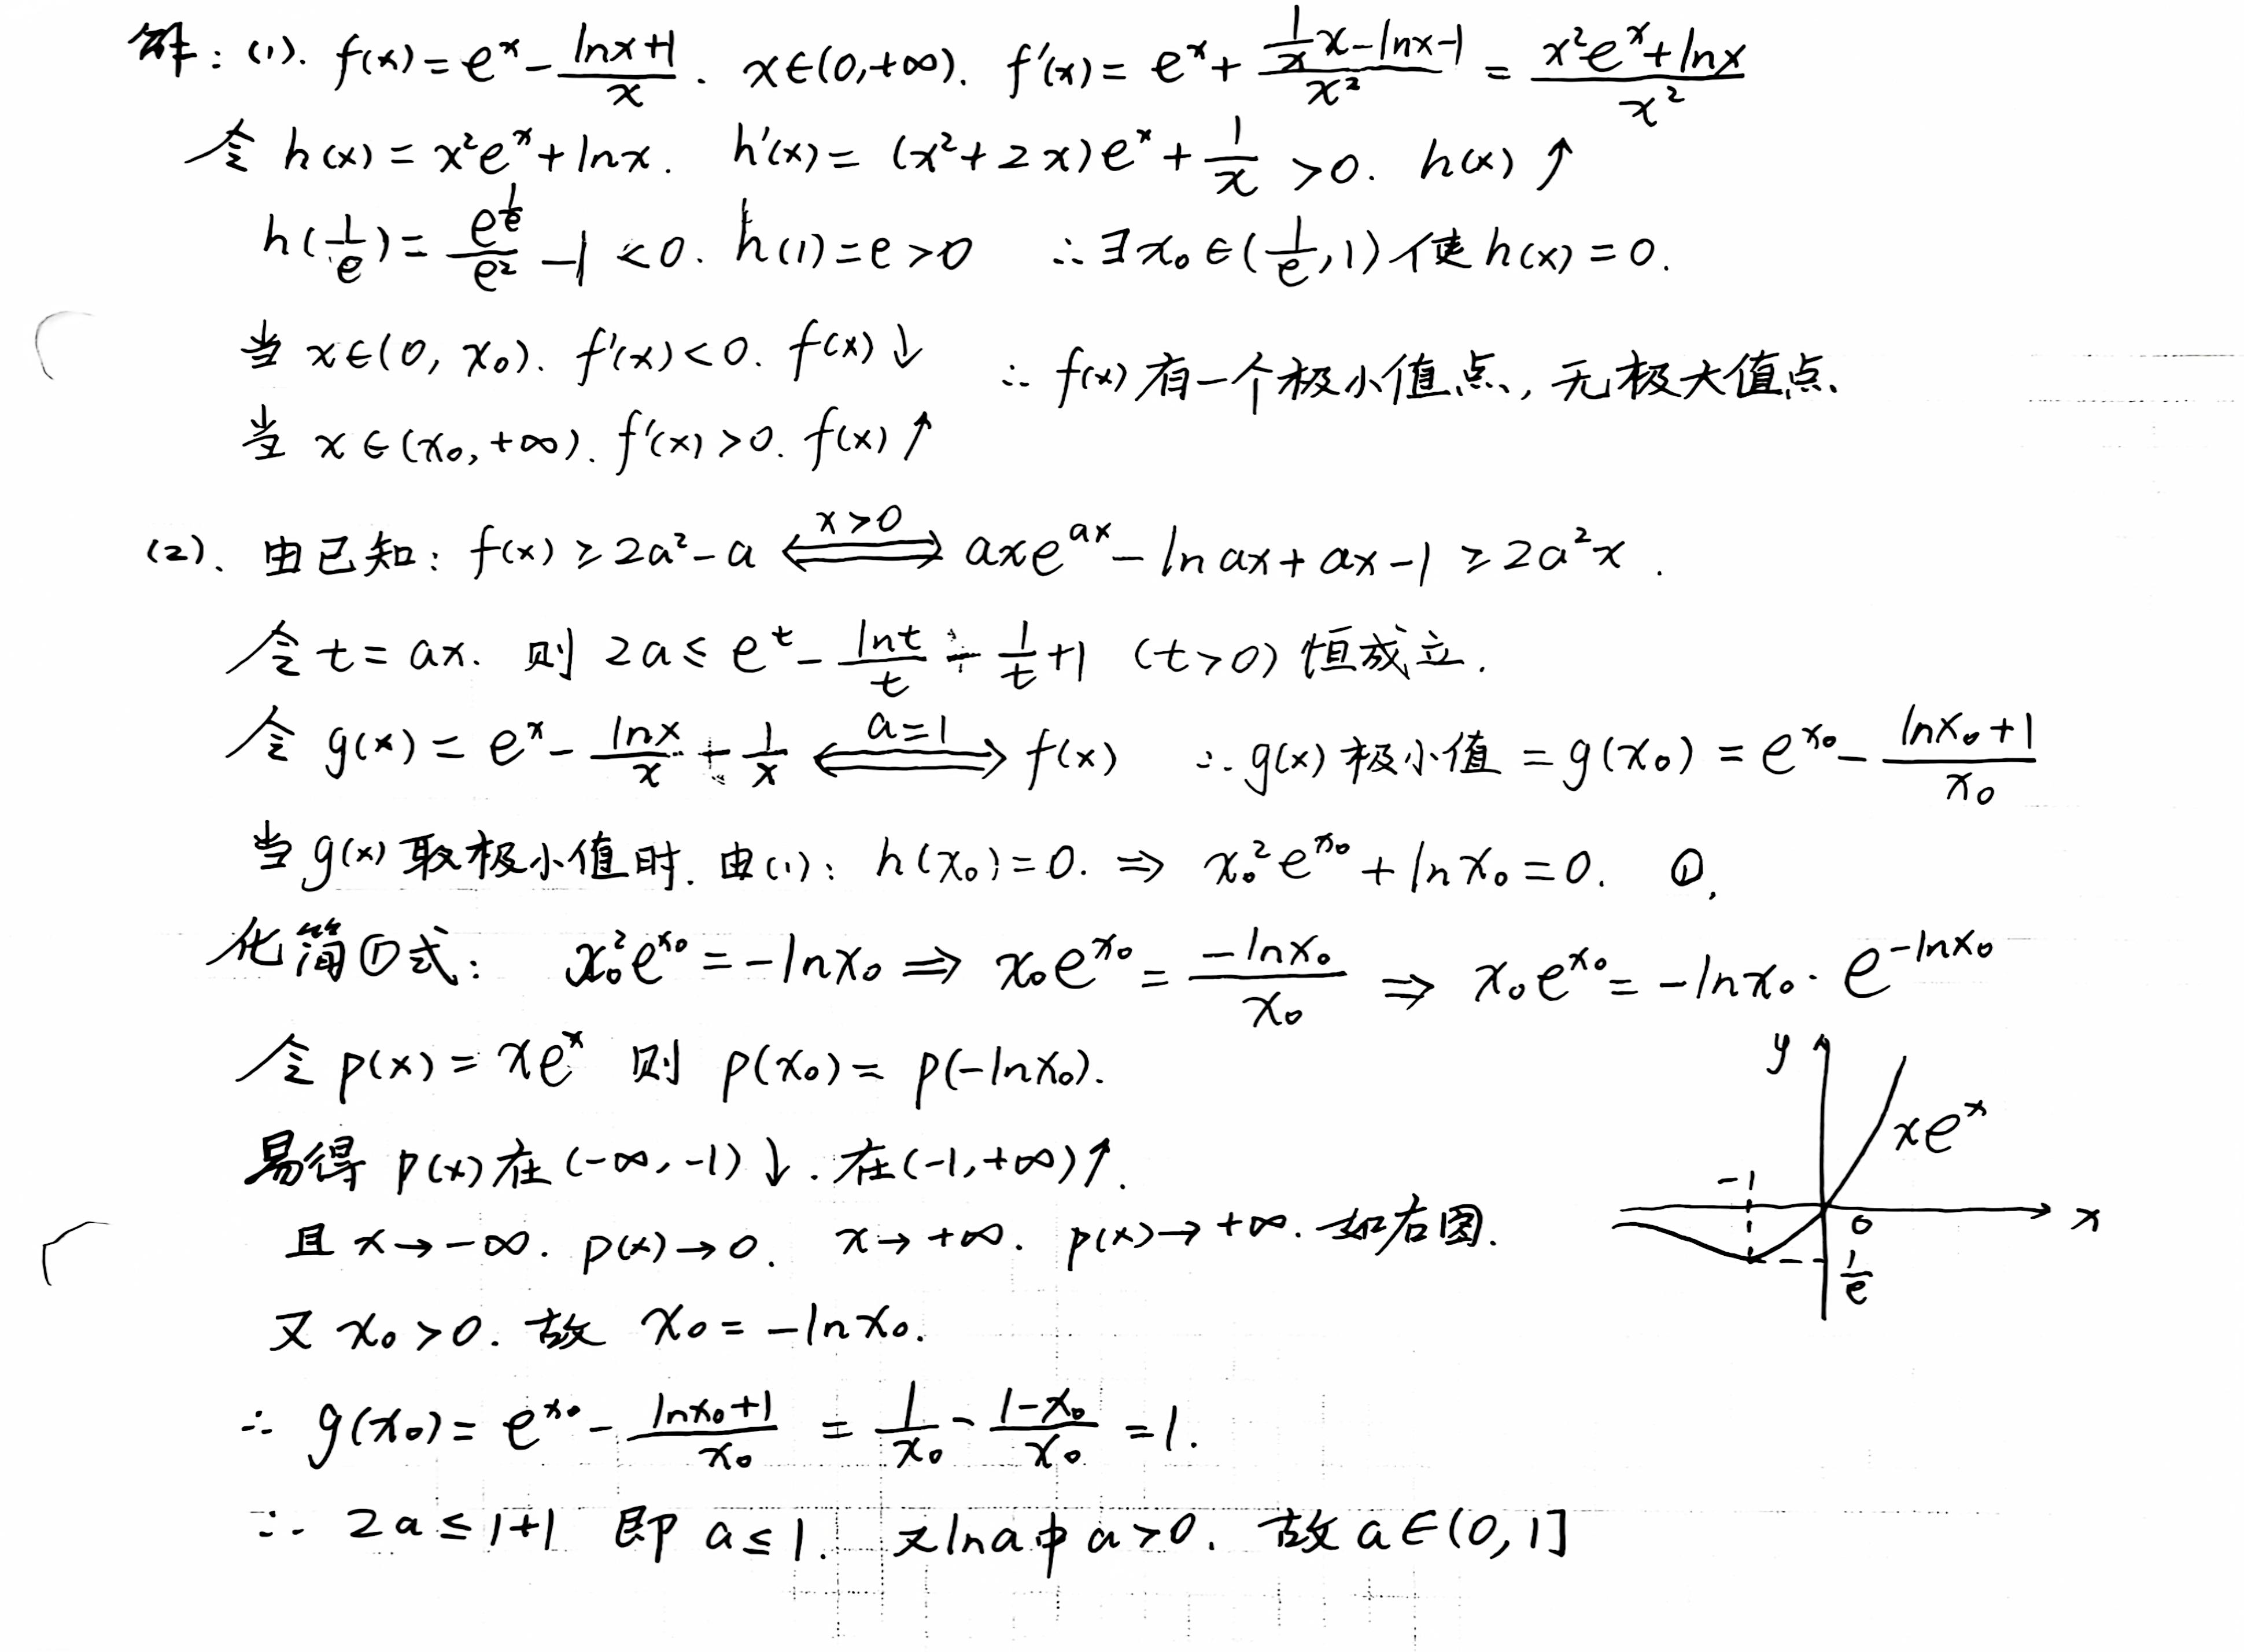 解：(1). f(x)=e^x-\frac{lnx+1}{x}. x∈(0,+∞). f'(x)=e^x+\frac{\frac{1}{x}x-lnx-1}{x^2}=\frac{x^2e^x+lnx}{x^2}
令 h(x)=x^2e^x+lnx. h'(x)=(x^2+2x)e^x+\frac{1}{x}>0. h(x)↑
h(\frac{1}{e})=\frac{e^{\frac{1}{e}}}{e^2}-1<0. h(1)=e>0 ∴∃x_0∈(\frac{1}{e},1)使h(x)=0.
当 x∈(0,x_0). f'(x)<0. f(x)↓
∴f(x)有一个极小值点,无极大值点.
当 x∈(x_0,+∞). f'(x)>0. f(x)↑
(2)、由已知：f(x)≥2a^2-a \xLeftrightarrow{x>0} axe^{ax}-lnax+ax-1≥2a^2x.
令t=ax. 则 2a≤e^t-\frac{lnt}{t}-\frac{1}{t}+1 (t>0)恒成立.
令 g(x)=e^x-\frac{lnx}{x}-\frac{1}{x} \xLeftrightarrow{a=1} f(x) ∴g(x)极小值=g(x_0)=e^{x_0}-\frac{lnx_0+1}{x_0}
当g(x)取极小值时.由(1)：h(x_0)=0. ⇒ x_0^2e^{x_0}+lnx_0=0. ①.
化简①式：x_0^2e^{x_0}=-lnx_0 ⇒ x_0e^{x_0}=\frac{-lnx_0}{x_0} ⇒ x_0e^{x_0}=-lnx_0·e^{-lnx_0}
令p(x)=xe^x 则 p(x_0)=p(-lnx_0).
易得 p(x)在(-∞,-1)↓.在(-1,+∞)↑.
且x→-∞. p(x)→0. x→+∞. p(x)→+∞. 如右图.
y
xe^x
-1
0
x
\frac{1}{e}
又 x_0>0. 故 x_0=-lnx_0.
∴ g(x_0)=e^{x_0}-\frac{lnx_0+1}{x_0}=\frac{1}{x_0}-\frac{1-x_0}{x_0}=1.
∴ 2a≤1+1 即 a≤1. 又lna中a>0. 故a∈(0,1]